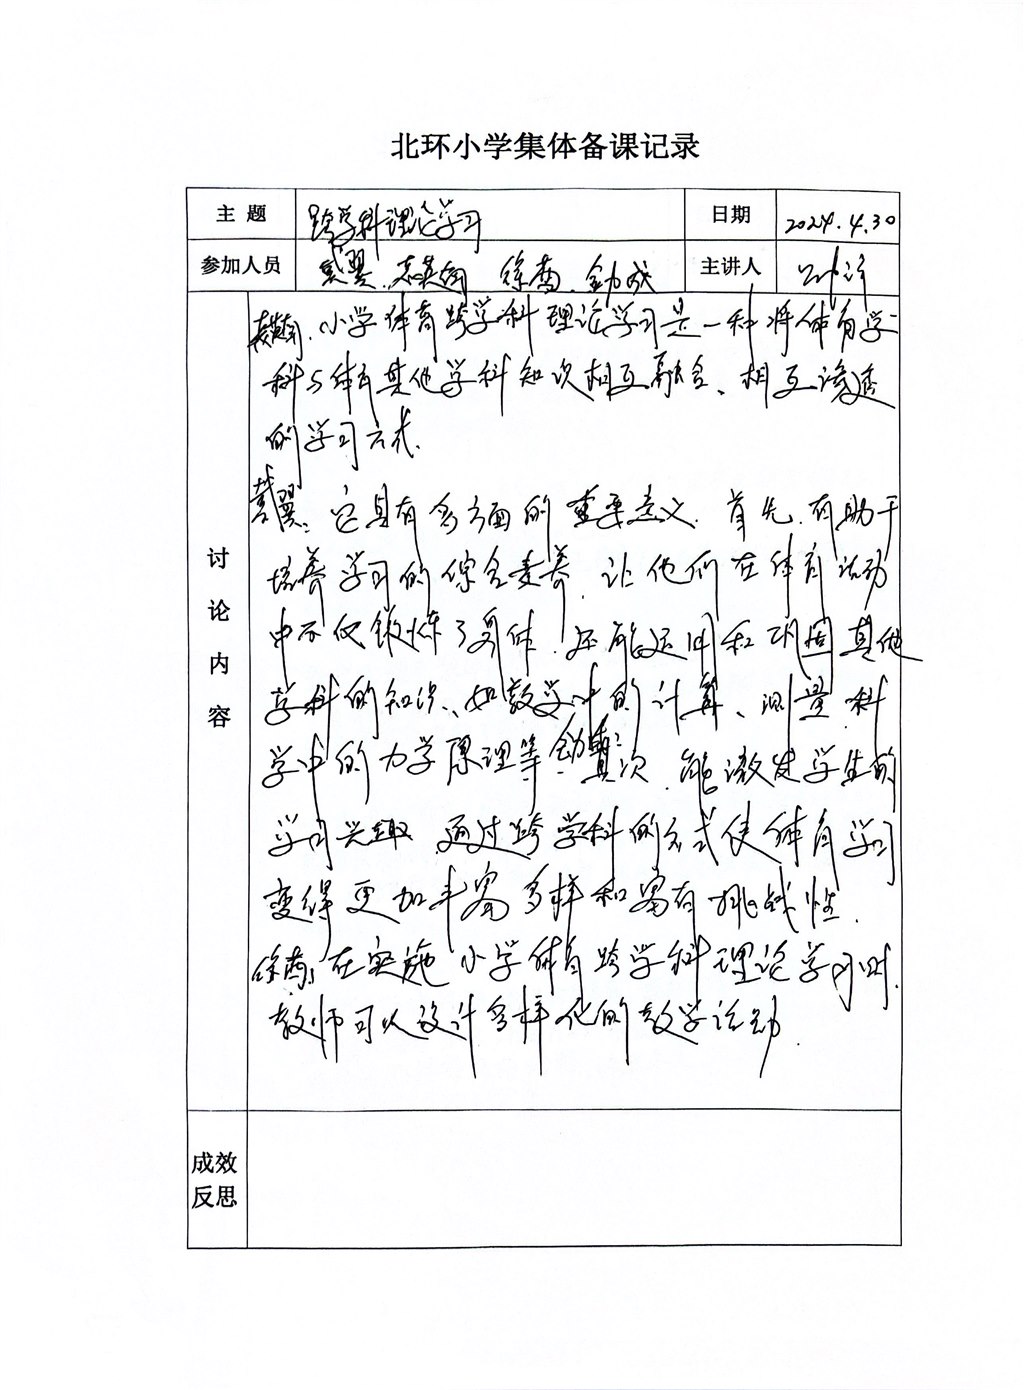 北环小学集体备课记录
主 题 跨学科理论学习 日期 2024.4.30
参加人员 徐茜、 主讲人
讨论内容
小学体育跨学科理论学习是一种将体育学
科与体育其他学科知识相互融合、相互渗透
的学习方式.
翼: 它具有多方面的重要意义. 首先.有助于
培养学习的综合素养.让他们在体育活动
中不仅锻炼了身体.还能运用和巩固其他
学科的知识、如数学中的计算、测量.科
学中的力学原理等 其次.能激发学生的
学习兴趣.通过跨学科的方式使体育学习
变得更加丰富多样和富有挑战性.
徐茜: 在实施小学体育跨学科理论学习时.
教师可以设计多样化的教学活动.
成效
反思